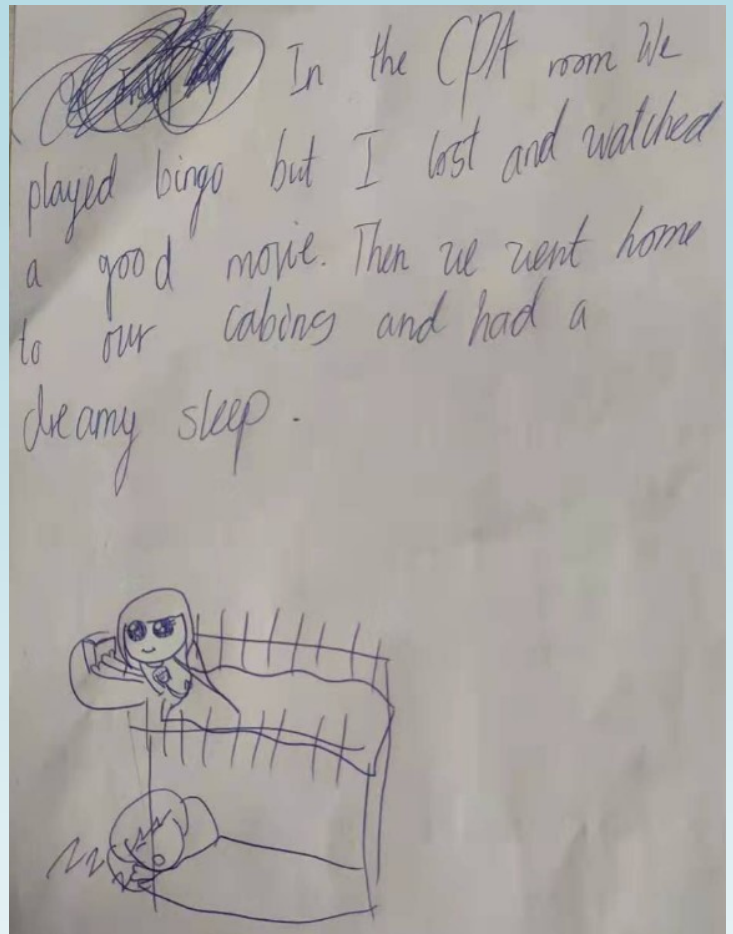 In the CPA room We
played bingo but I lost and watched
a good movie. Then we went home
to our cabings and had a
dreamy sleep.